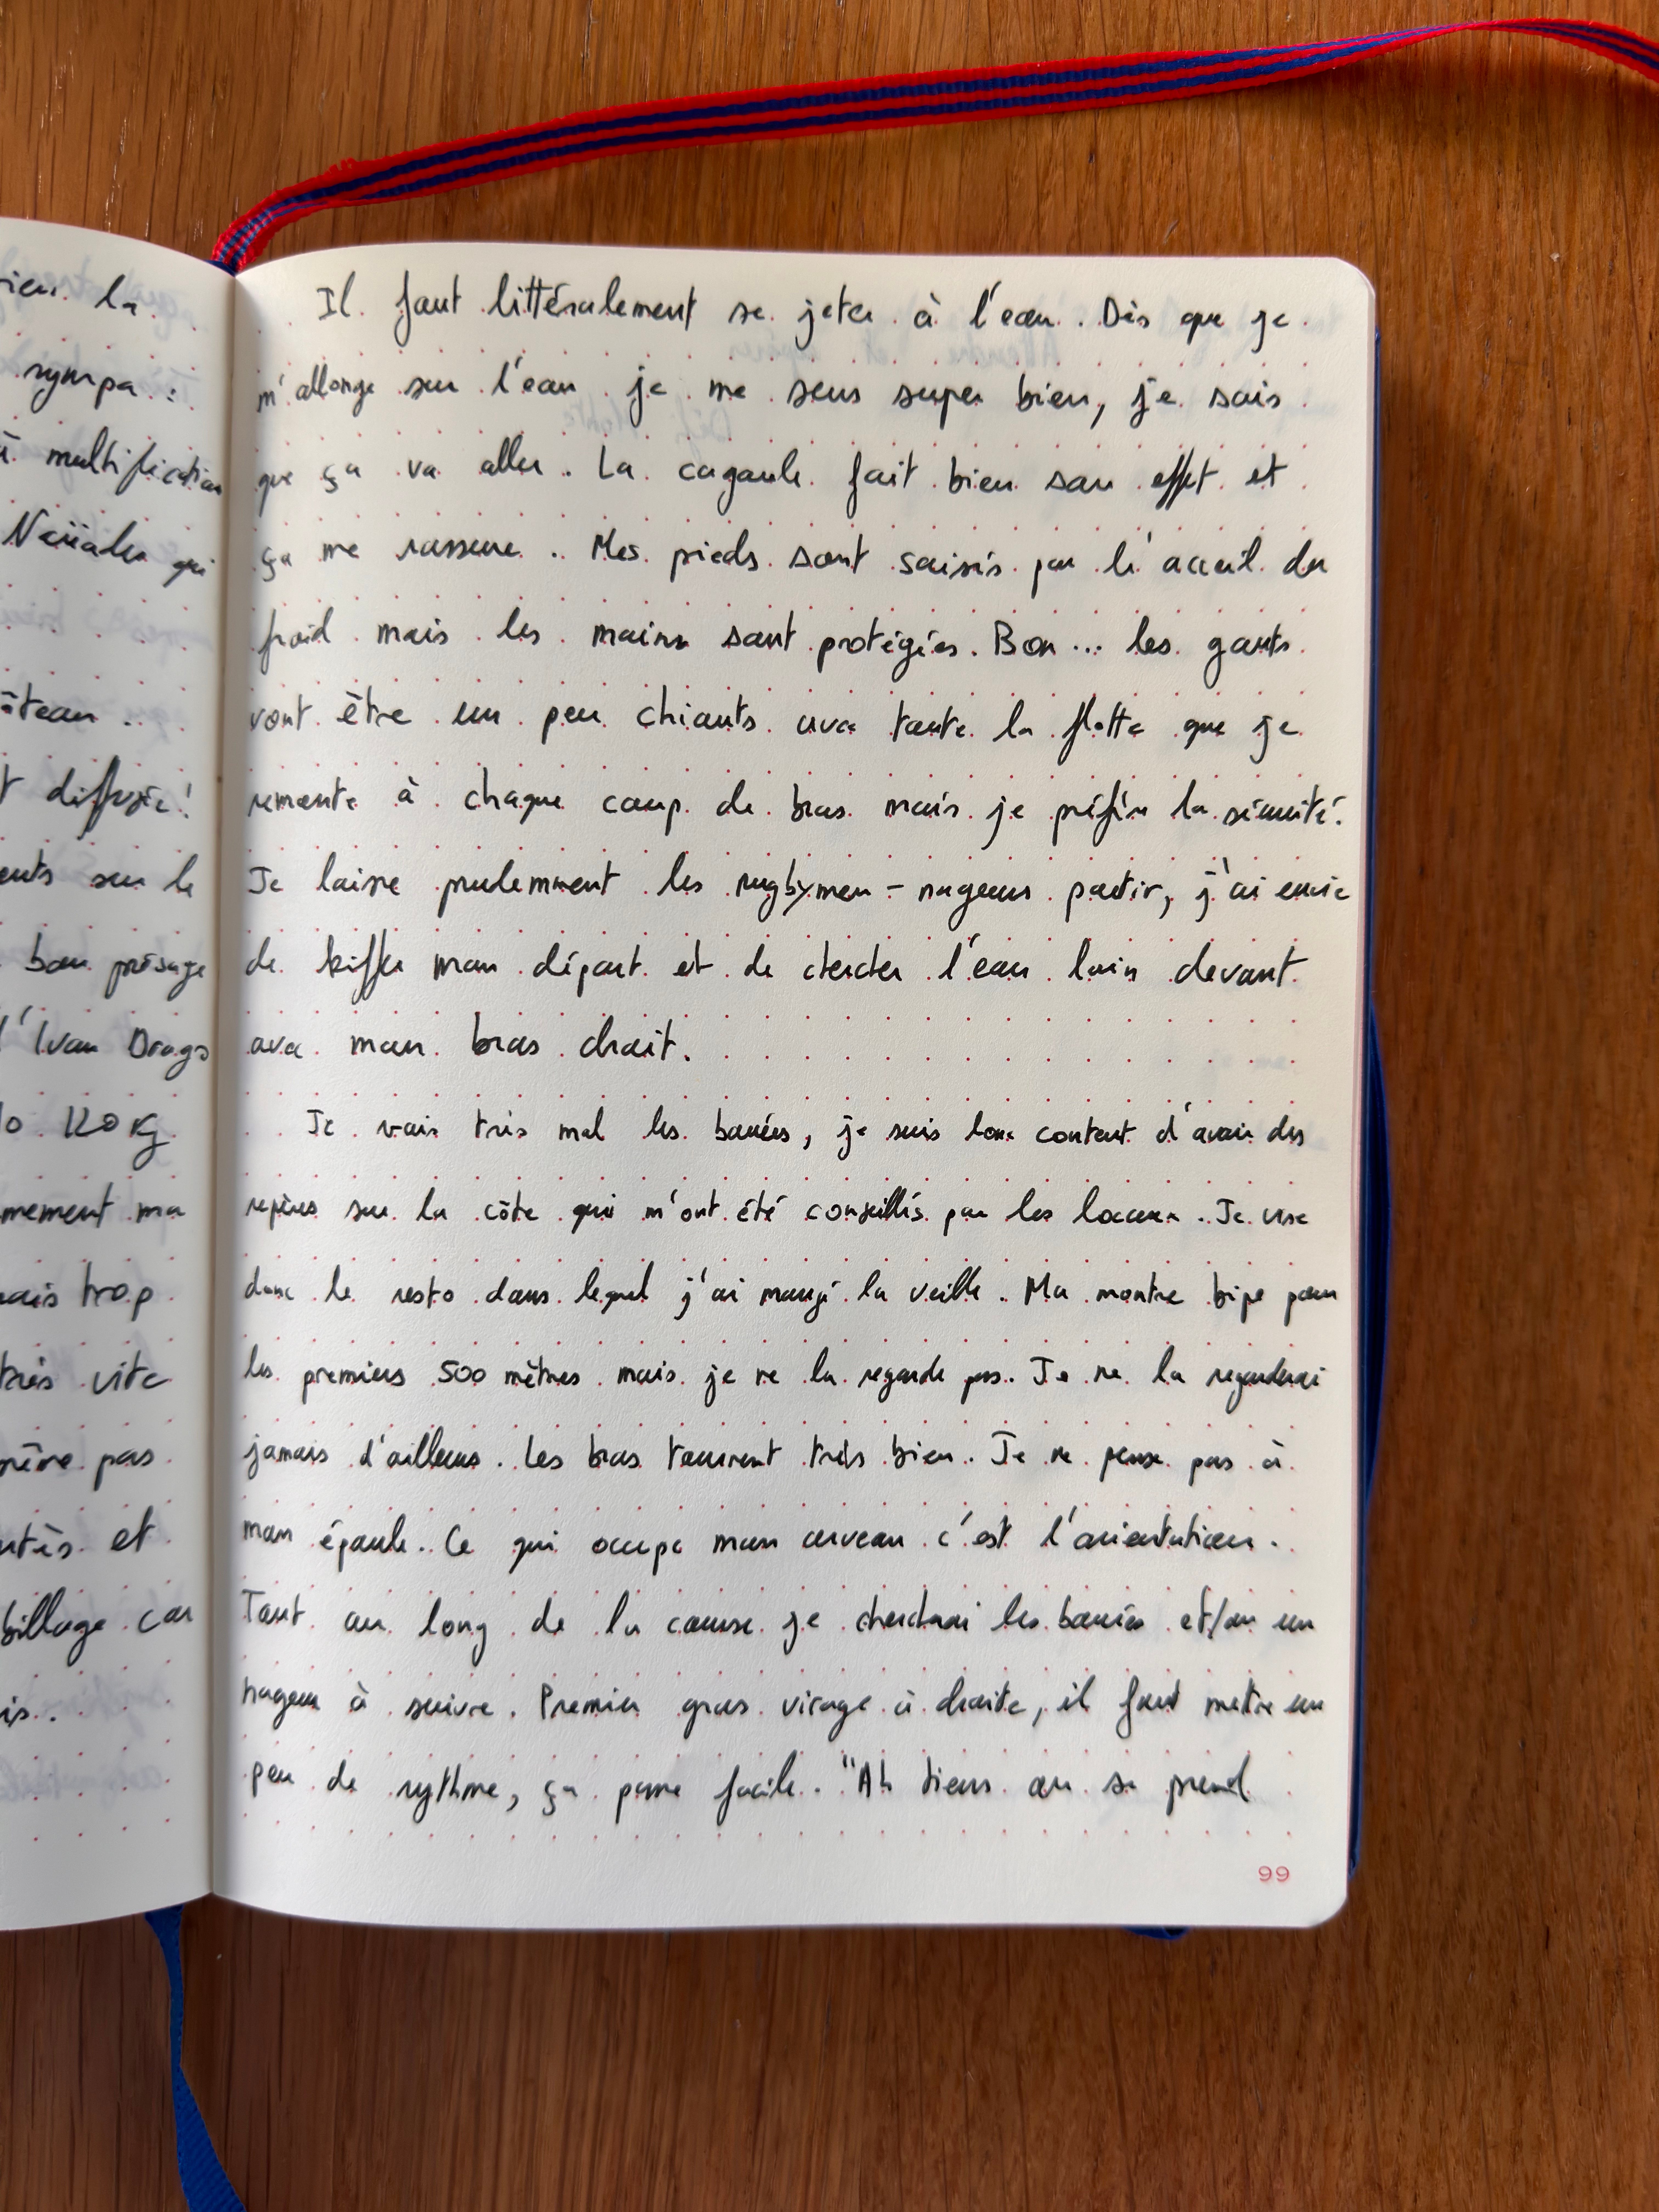 ien la
sympa :
à multification
qui
âteau ..
t diffusée !
ents sur le
bon présage
d'Ivan Drago
lo KORG
mement ma
mais trop
très vite
même pas
et
billage car
is.
Il faut littéralement se jeter à l'eau. Dès que je
m'allonge sur l'eau je me sens super bien, je sais
que ça va aller. La cagoule fait bien son effet et
ça me rassure.. Mes pieds sont saisis par l'acceuil du
froid mais les mains sont protégées. Bon... les gants
vont être un peu chiants avec toute la flotte que je
remonte à chaque coup de bras mais je préfère la sécurité.
Je laisse prudemment les rugbymen-nageurs partir, j'ai envie
de kiffer mon départ et de chercher l'eau loin devant
avec mon bras droit.
Je vois très mal les bouées, je suis donc content d'avoir des
repères sur la côte qui m'ont été conseillés par les locaux. Je vise
donc le resto dans lequel j'ai mangé la veille. Ma montre bipe pour
les premiers 500 mètres mais je ne la regarde pas. Je ne la regarderai
jamais d'ailleurs. Les bras tournent très bien. Je ne pense pas à
mon épaule. Ce qui occupe mon cerveau c'est l'orientation.
Tout au long de la course je chercherai les bouées et/ou un
nageur à suivre. Premier gros virage à droite, il faut mettre un
peu de rythme, ça passe facile. "Ah tiens on se prend
99